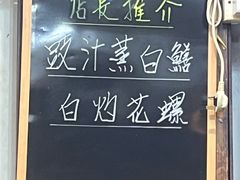 店长推介
豉汁蒸白鳝
白灼花螺